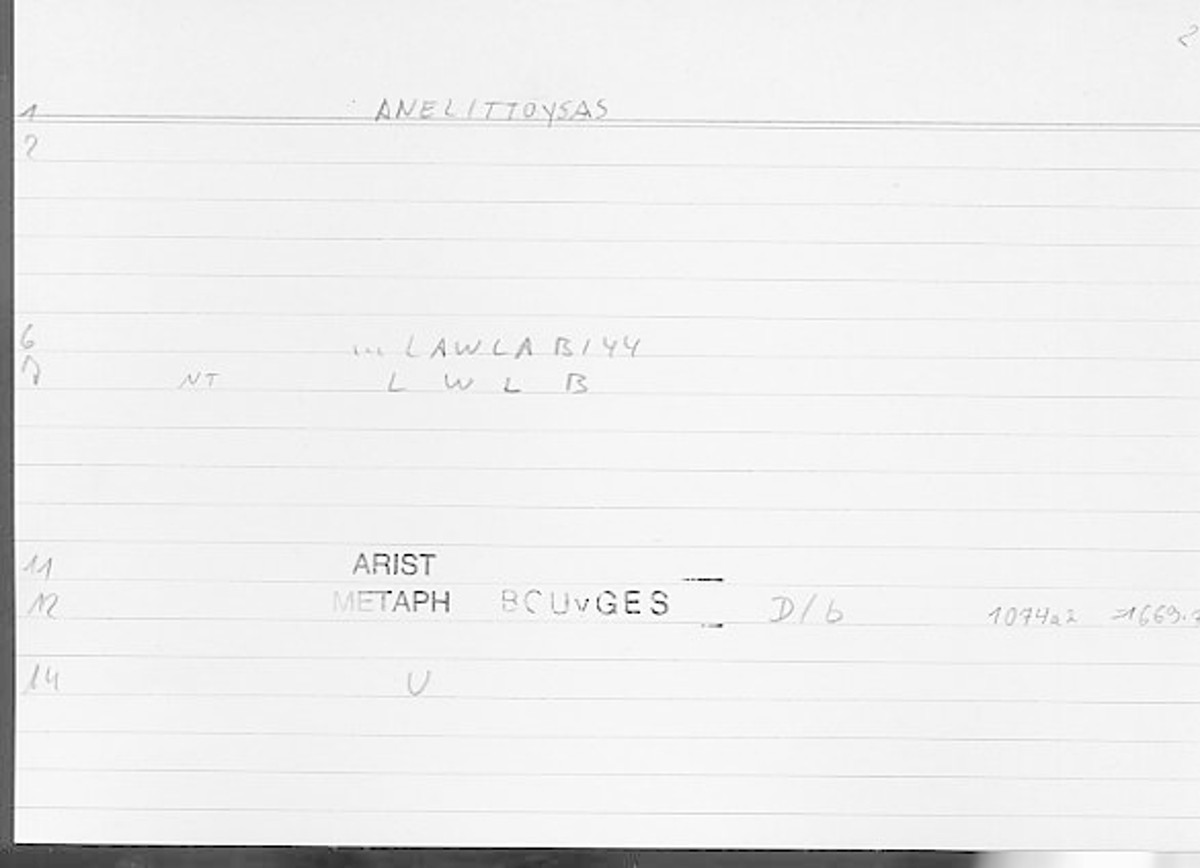 2
1 ANELITTOYSAS
2
6 ... LAWLABIYY
7 NT L W L B
11 ARIST
12 METAPH BOUYGES D/b 1074a2 =1669.7
14 U